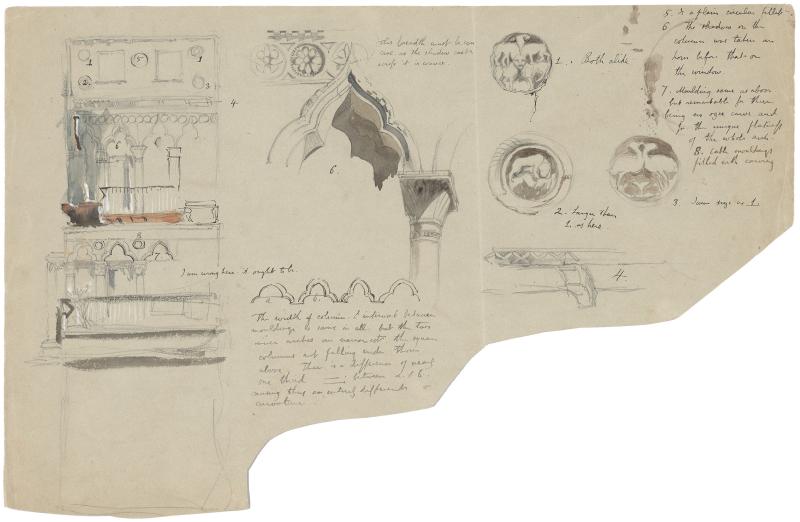 1
5
1
2
3
4.
6
8
7
I am wrong here. it ought to be.
this breadth must be
as the shadow cast
6.
a
b.
The width of column & interval between
mouldings is same in all but the two
arches are the square
columns not falling under those
above. There is a difference of nearly
one third between a & b.
making thus an entirely different
curvature.
1. Both alike
2. Larger than
1. as here
3. same size as 1.
4.
5. Is a plain circular fillet
6 The shadow on the
columns was taken an
hour before that on
the window.
7. Moulding same as above
but remarkable for there
being no ogee curve and
for the unique flatness
of the whole arch
8. Cable mouldings
filled with carving